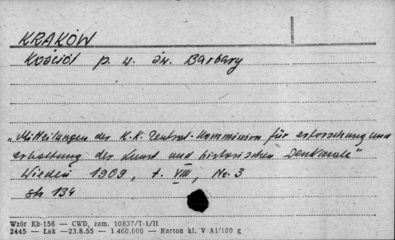 KRAKÓW
Kościół p. w. św. Barbary
"Mitteilungen der K.K. Zentral-Kommission für erforschung und
erhaltung der Kunst und historischen Denkmale"
Wiedeń 1909, t. VIII, No. 3
str 134
Wzór Kb-156 — CWD, zam. 10837/T-1/II
2445 — Łak —23.8.55 — 1.460.000 — Karton kl. V A1/180 g